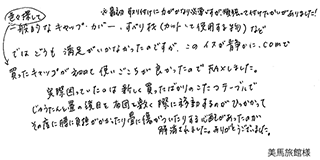 色々探して
※最初取り付けに力がかなり必要ですが、頑張って付けたかいがありました!
一般的なキャップ・カバー、すべり板(カットして使用する物)など
ではどうも満足がいかなかったのですが、このイス静かに.comで
買ったキャップが初めて使いごこちが良かったのでFAXしました。
実際困っていたのは新しく買ったばかりのこたつテーブルで
じゅうたん畳の後目を布団を敷く際に移動するのがひっかかって
その度に腰に負担がかかったり畳に傷がついたりする心配があったのが
解消されました。ありがとうございました。
美馬旅館様